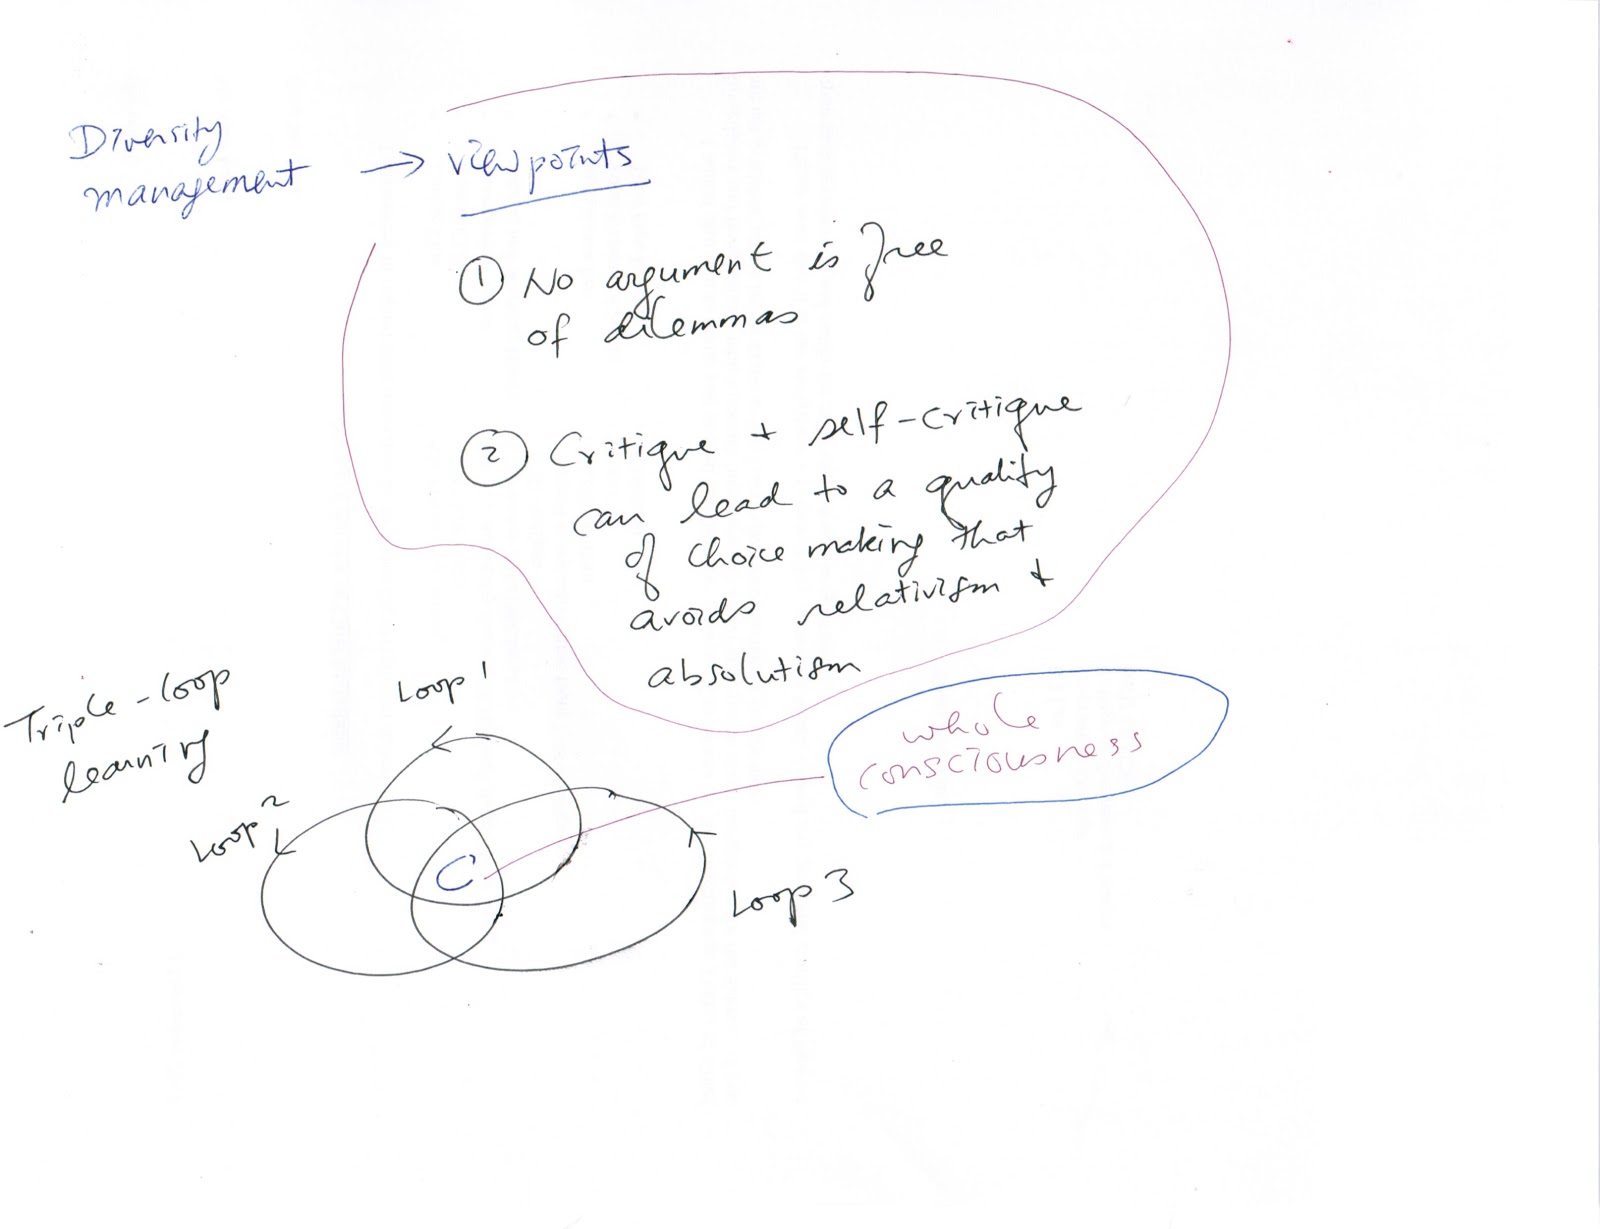 Diversity
management → viewpoints
① No argument is free
of dilemmas
② Critique + self-critique
can lead to a quality
of choice making that
avoids relativism +
absolutism
Triple-loop
learning
Loop 1
Loop 2
C
Loop 3
whole
consciousness